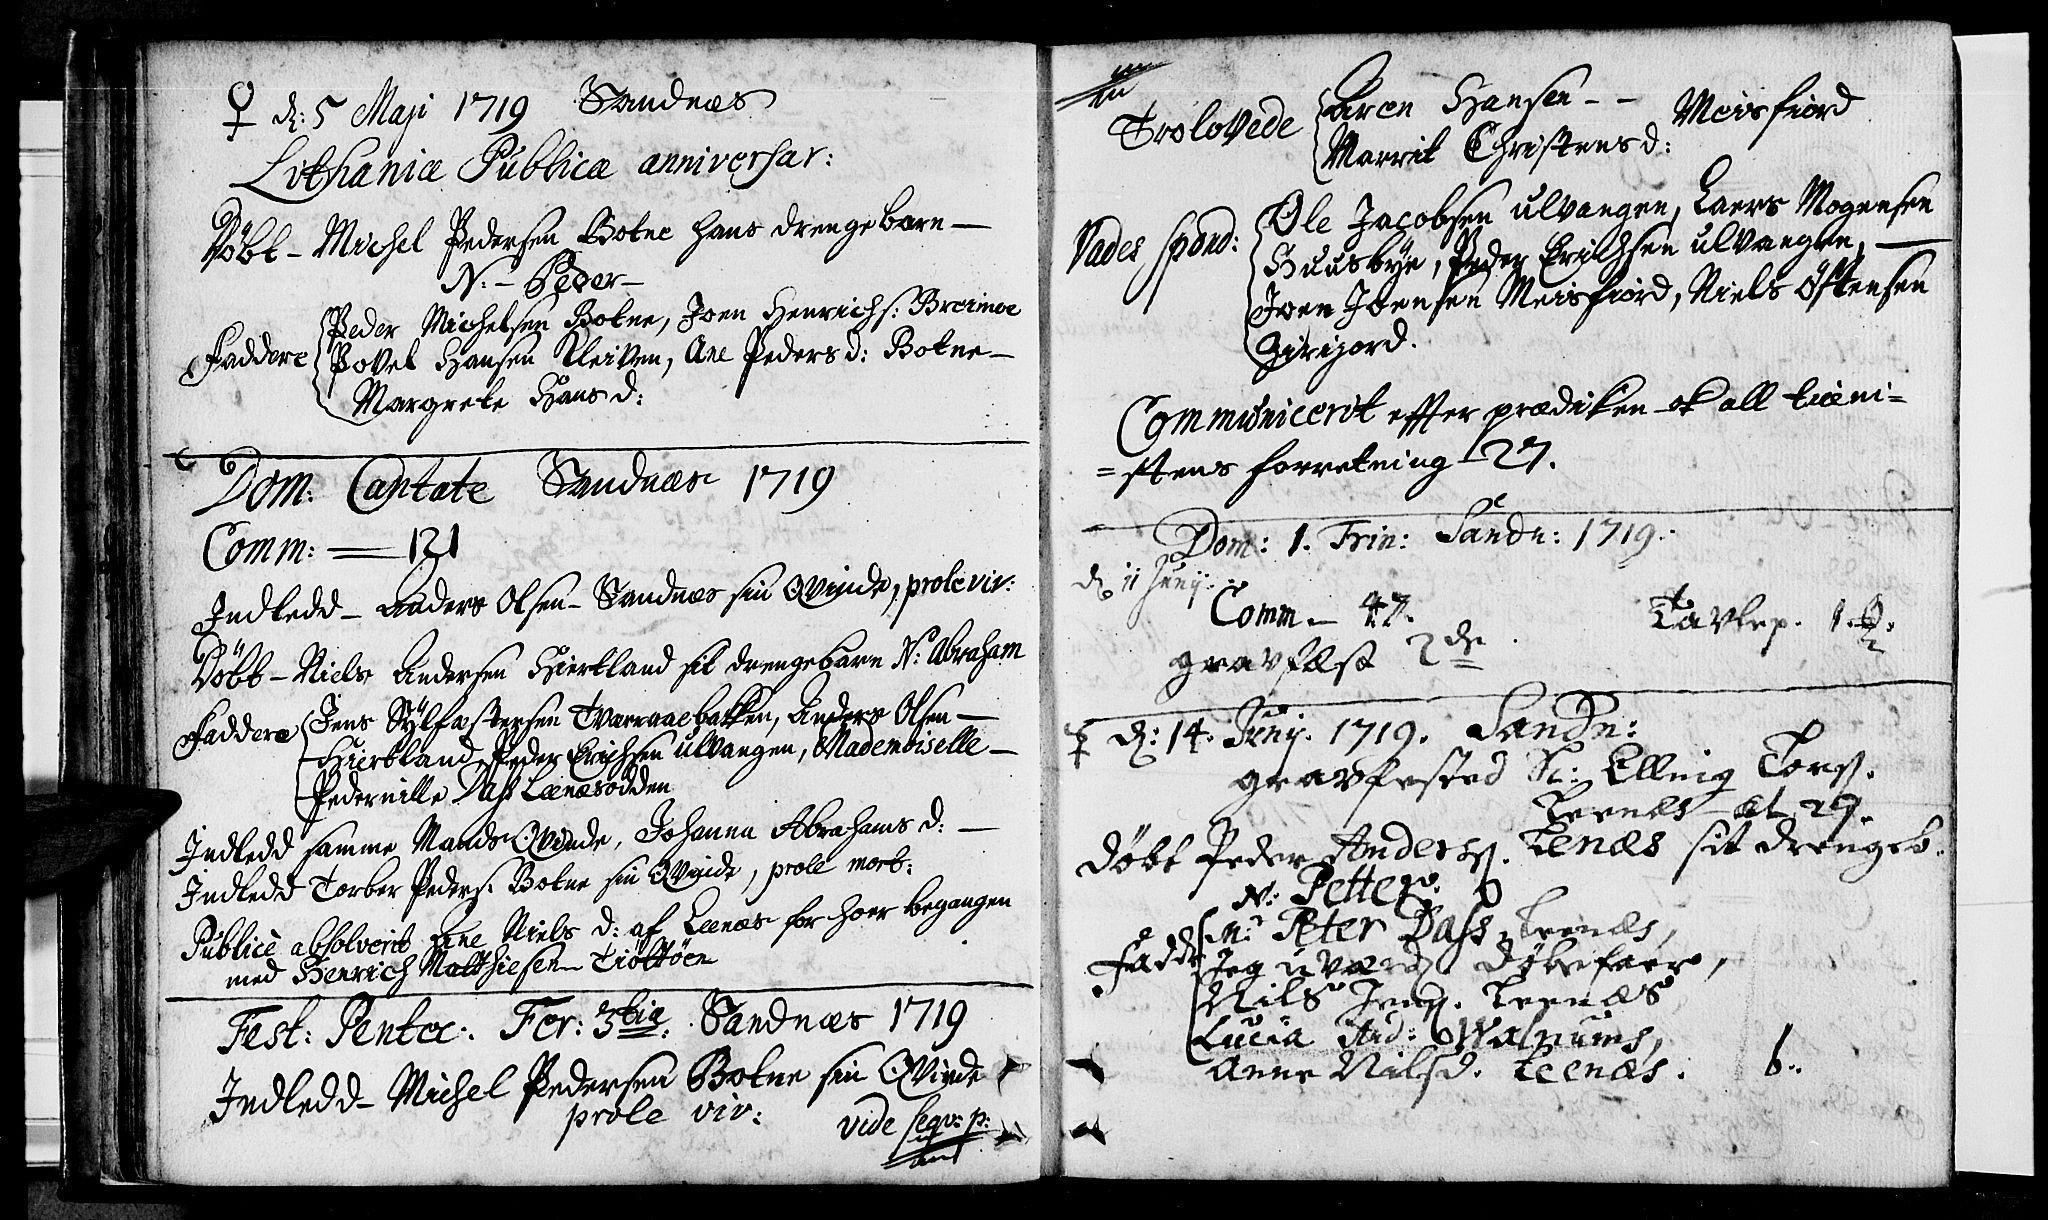 ♀ d: 5 Maji 1719 Sandnæs
Lithaniæ Publicæ anniversar:
Döbt - Michel Pedersen Botne hans drengebarn -
N: - Peder -
Peder Michelsen Botne, Joen Henrichs: Breimoe
Faddere Povel Hansen Kleiven, Ane Pedersd: Botne -
Margrete Hansd:
Dom: Cantate Sandnæs 1719
Comm: — 121
Indledd - Anders Olsen - Sandnæs sin Qvinde, prole viv:
Döbt - Niels Andersen Hiertland sit drengebarn N: Abraham
Faddere Jens Sylfæstersen Tværraaebakken, Anders Olsen -
Hiertland, Peder Erichsen Ulvangen, Mademoiselle -
Pedernille Dass Leenæsodden
Indledd samme Mands Qvinde, Johanna Abrahamsd: -
Indledd Torber Peders: Botne sin Qvinde, prole mort:
Publicè absolverit Ane Nielsd: af Leenæs for hoer begangen
med Henrich Matthiesen Tiöttöen
Fest: Pentec: Fer: 3tia. Sandnæs 1719
Indledd - Michel Pedersen Botne sin Qvinde
prole viv:
vide seqv: p:
Trolovede Aren Hansen - - Meisfiord
Marrit Christensd:
Vades spond: Ole Jacobsen Ulvangen, Laers Mogensen
Huusbÿe, Peder Erichsen Ulvangen, —
Joen Joensen Meisfiord, Niels Östensen
Girijord.
Communicerit effter prædiken ok all tieni=
=stens forretning - 27.
Dom: 1. Trin: Sandn: 1719.
d. 11 Junij.
Comm - 47. Tavlep. 1.
gravfæst 2de
d: 14. Junij. 1719. Sandn:
gravfested N: Elling Tors.
Leenæs æt 29.
döbt Peder Anders. Lenæs sit drengeb.
N: Petter.
Fadd: M: Peter Dass Leenæs,
Nils Jens. Leenæs
Lucia And: Walnums,
Anne Nilsd. Leenæs. 6.